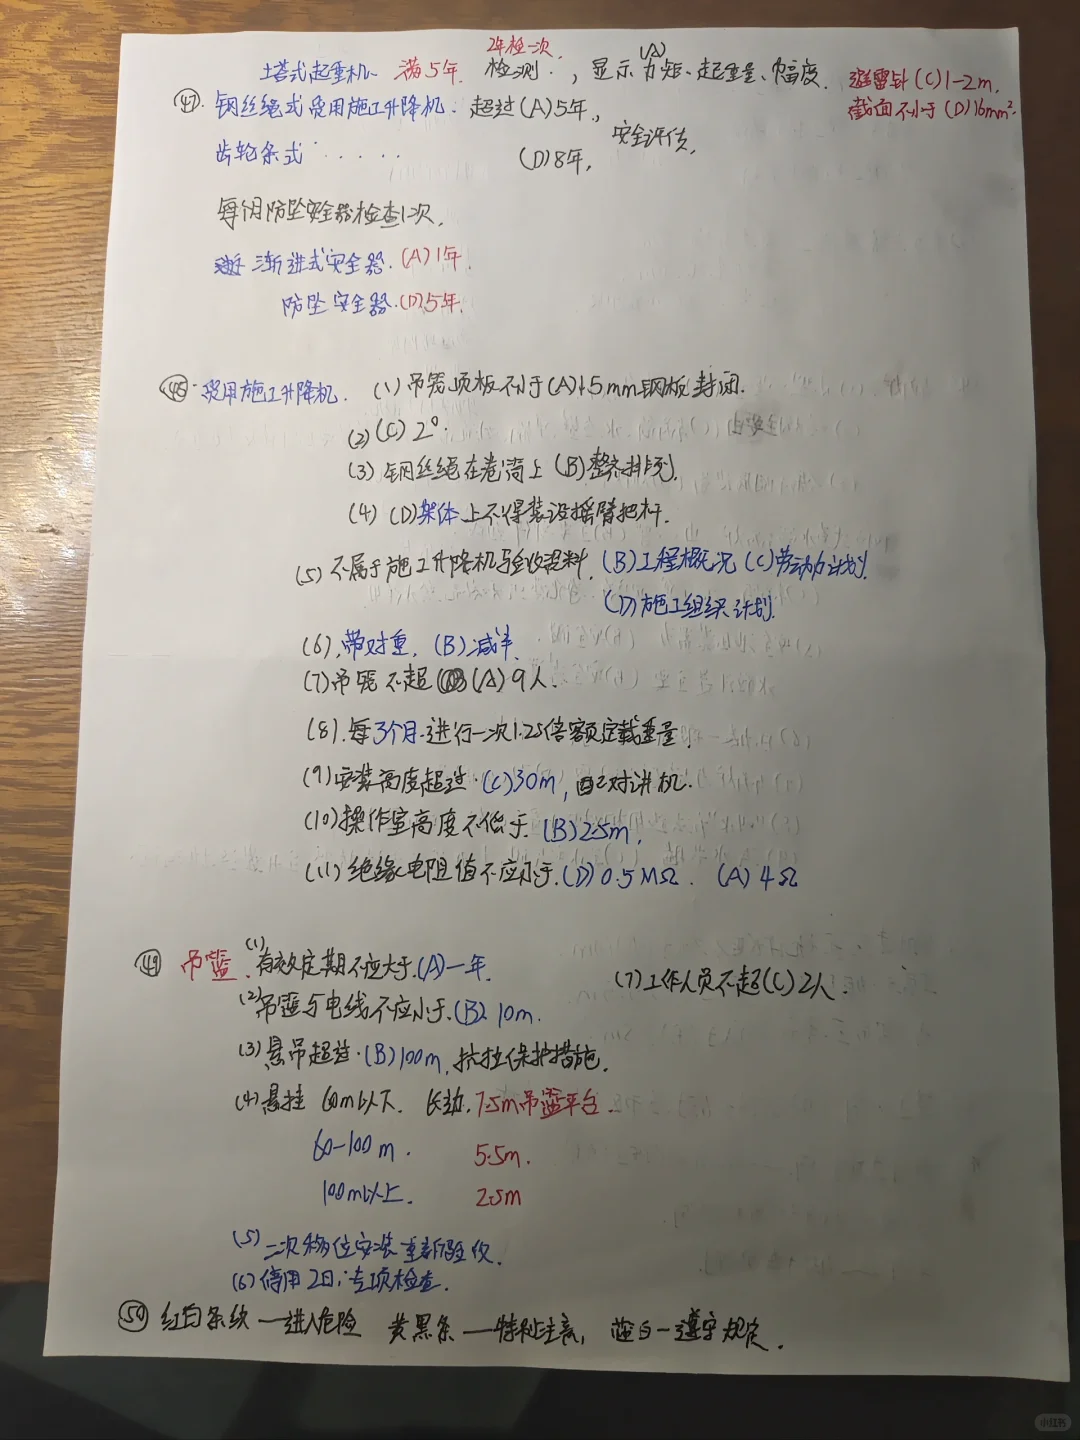 2年检一次.
塔式起重机、满5年. 检测. , 显示(A)力矩、起重量、幅度. 避雷针(C)1-2m.
㊼. 钢丝绳式货用施工升降机: 超过(A)5年., 截面不小于(D)16mm².
齿轮条式 ..... (D)8年, 安全评估.
每個月防坠安全器检查1次.
渐进式安全器. (A)1年.
防坠安全器.(D)5年.
㊽ 货用施工升降机. (1)吊笼顶板不小于(A)1.5mm钢板封闭.
(2)(C)2°.
(3)钢丝绳在卷筒上(B)整齐排列.
(4)(D)架体上不得装设摇臂把杆.
(5)不属于施工升降机验收资料. (B)工程概况(C)劳动力计划.
(D)施工组织计划.
(6).带对重. (B)减半.
(7)吊笼不超(A)9人.
(8).每3个月进行一次1.25倍额定载重量.
(9)安装高度超过.(C)30m, 配对讲机.
(10)操作室高度不低于.(B)2.5m.
(11)绝缘电阻值不应小于.(D)0.5MΩ. (A)4Ω
㊾ 吊篮. (1)有效定期不应大于.(A)一年.
(7)工作人员不超(C)2人.
(2)吊篮与电线不应小于.(B)10m.
(3)悬吊超过.(B)100m, 抗拉保护措施.
(4)悬挂 60m以下. 长边. 7.5m吊篮平台.
60-100m. 5.5m.
100m以上. 2.5m
(5)二次移位安装重新验收.
(6)停用2日,专项检查.
㊿ 红白条纹—进入危险 黄黑条—特别注意, 蓝白—遵守规定.